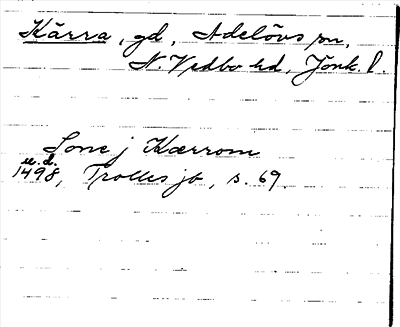 Kärra, gd, Adelövs sn,
N. Vedbo hd, Jönk. l.
Lone j Kærrom
u.d.
1498, Trolles jb, s. 69.